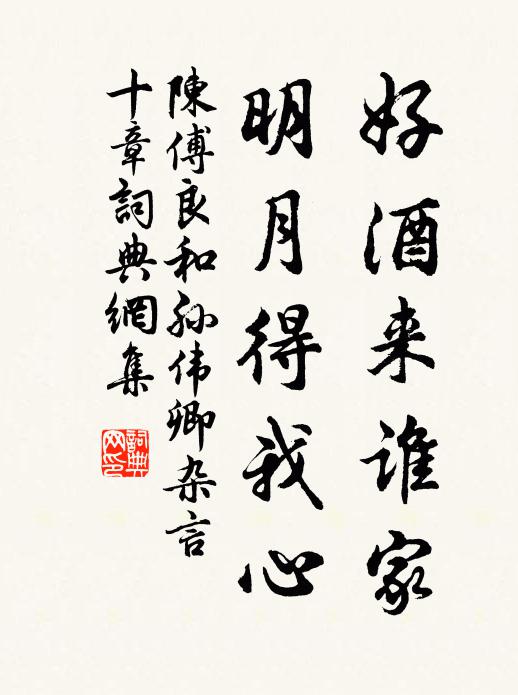 好酒来谁家
明月得我心
陳傅良和孙伟卿杂言
十章詞典網集
詞典
网印